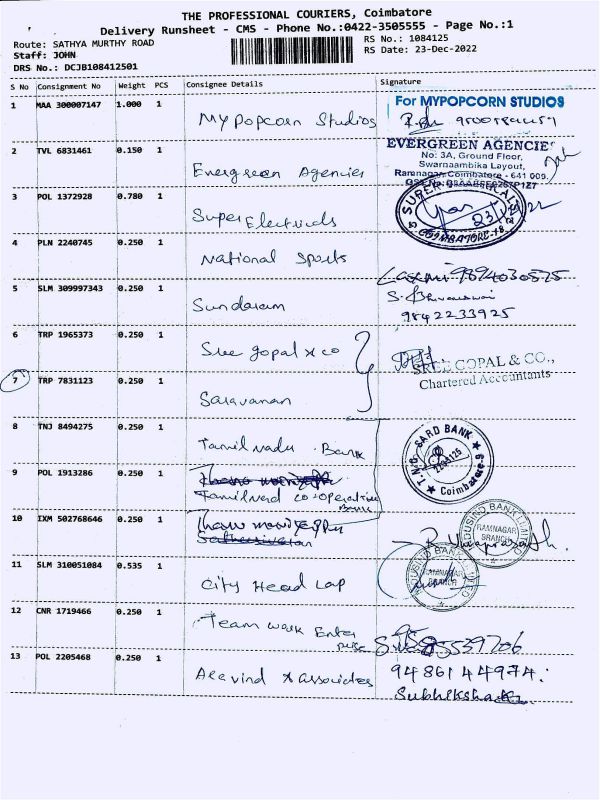 THE PROFESSIONAL COURIERS, Coimbatore
Delivery Runsheet - CMS - Phone No.:0422-3505555 - Page No.:1
Route: SATHYA MURTHY ROAD
RS No.: 1084125
Staff: JOHN
RS Date: 23-Dec-2022
DRS No.: DCJB108412501
S No Consignment No Weight PCS Consignee Details Signature
1 MAA 300007147 1.000 1 My popcorn Studios
For MYPOPCORN STUDIOS
2 TVL 6831461 0.150 1 Evergreen Agencies
EVERGREEN AGENCIES
No: 3A, Ground Floor,
Swarnaambika Layout,
Ramnagar, Coimbatore - 641 009.
3 POL 1372928 0.780 1 Super Electricals
23/12/22
COIMBATORE-18
4 PLN 2240745 0.250 1 National Sports
Laxmi 9894030575
5 SLM 309997343 0.250 1 Sundaram
9842233925
6 TRP 1965373 0.250 1 Sree gopal & co
SREE GOPAL & CO.,
Chartered Accountants
7 TRP 7831123 0.250 1 Saravanan
8 TNJ 8494275 0.250 1 Tamil nadu Bank
T.N.G. SARD BANK
Coimbatore-9
9 POL 1913286 0.250 1
Tamilnad co-operative
Bank
10 IXM 502768646 0.250 1
HOUSING BANK LIMITED
RAMNAGAR
BRANCH
11 SLM 310051084 0.535 1 City Head Lap
HOUSING BANK LIMITED
RAMNAGAR
BRANCH
12 CNR 1719466 0.250 1 Team work Enter
prise
13 POL 2205468 0.250 1 Aravind & associates
9486144974.
Subhiksha